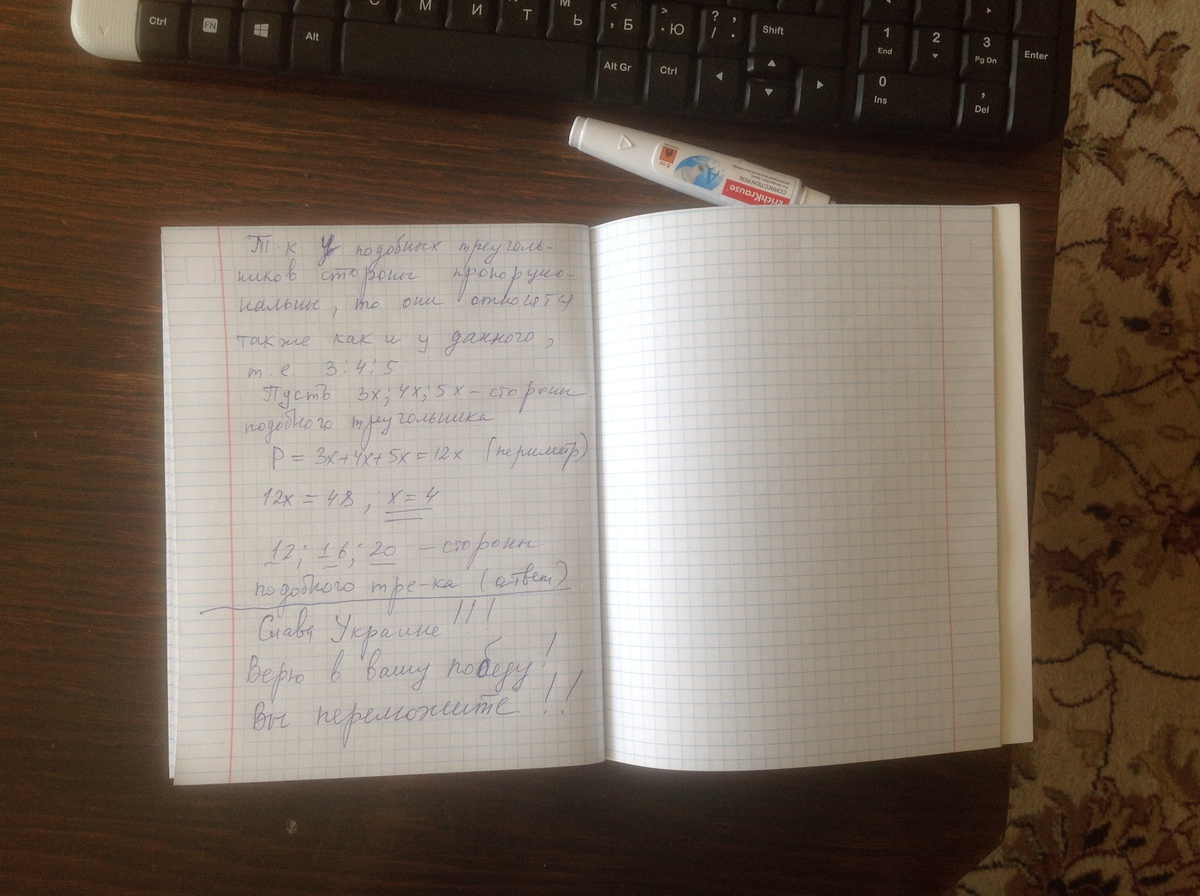 Ctrl
FN
Alt
С
М
И
Т
М Ь
< , Б
> . Ю
? , / .
Shift
Alt Gr
Ctrl
1 End
2
3 Pg Dn
Enter
0 Ins
, Del
ErichKrause
CORRECTION PEN
Т.к у подобных треуголь-
ников стороны пропорцио-
нальны, то они относятся
также как и у данного,
т.е. 3:4:5
Пусть 3х; 4х; 5х – стороны
подобного треугольника
P = 3х+4х+5х = 12х (периметр)
12х = 48, х = 4
12; 16; 20 – стороны
подобного тре-ка (ответ)
Слава Украине !!!
Верю в вашу победу!
Вы переможите !!